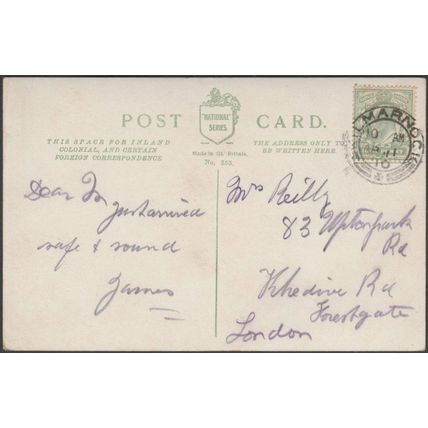 POST CARD.
"NATIONAL"
SERIES
Made in Gt. Britain.
No. 253.
THIS SPACE FOR INLAND
COLONIAL, AND CERTAIN
FOREIGN CORRESPONDENCE
THE ADDRESS ONLY TO
BE WRITTEN HERE
KILMARNOCK
10 AM
AP 11
10
Dear M
Just arrived
safe & sound
James
Mrs Reilly
83 Upton park
Rd
Khedive Rd
Forestgate
London